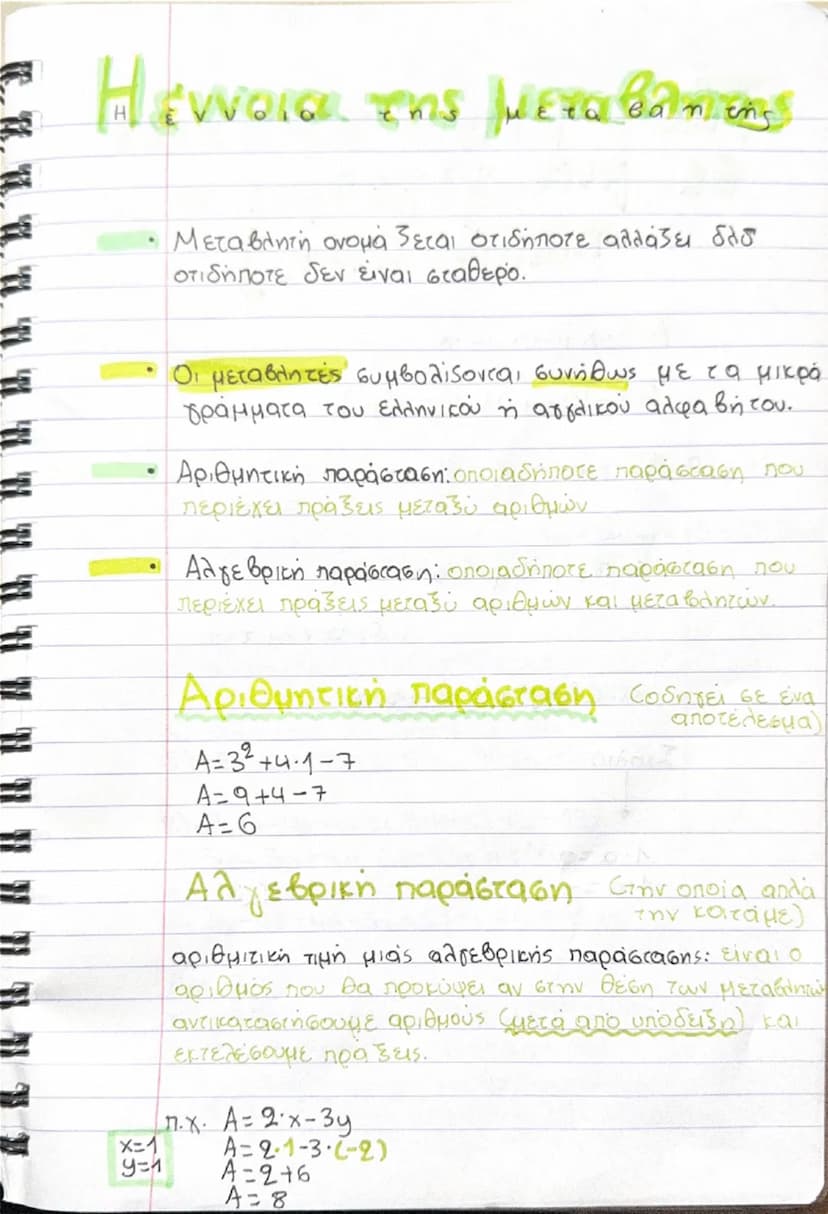 Η έννοια της μεταβλητής
• Μεταβλητή ονομάζεται οτιδήποτε αλλάζει δλδ
οτιδήποτε δεν είναι σταθερό.
• Οι μεταβλητές συμβολίζονται συνήθως με τα μικρά
γράμματα του ελληνικού ή αγγλικού αλφαβήτου.
• Αριθμητική παράσταση: οποιαδήποτε παράσταση που
περιέχει πράξεις μεταξύ αριθμών
• Αλγεβρική παράσταση: οποιαδήποτε παράσταση που
περιέχει πράξεις μεταξύ αριθμών και μεταβλητών.
Αριθμητική παράσταση (οδηγεί σε ένα
αποτέλεσμα)
A=3²+4·1-7
A=9+4-7
A=6
Αλγεβρική παράσταση (την οποία απλά
την κοιτάμε)
αριθμιτική τιμή μιάς αλγεβρικής παράστασης: είναι ο
αριθμός που θα προκύψει αν στην θέση των μεταβλητών
αντικαταστήσουμε αριθμούς (μετά από υπόδειξη) και
εκτελέσουμε πράξεις.
π.χ. A=2·x-3y
x=1
y=1
A=2·1-3·(-2)
A=2+6
A=8